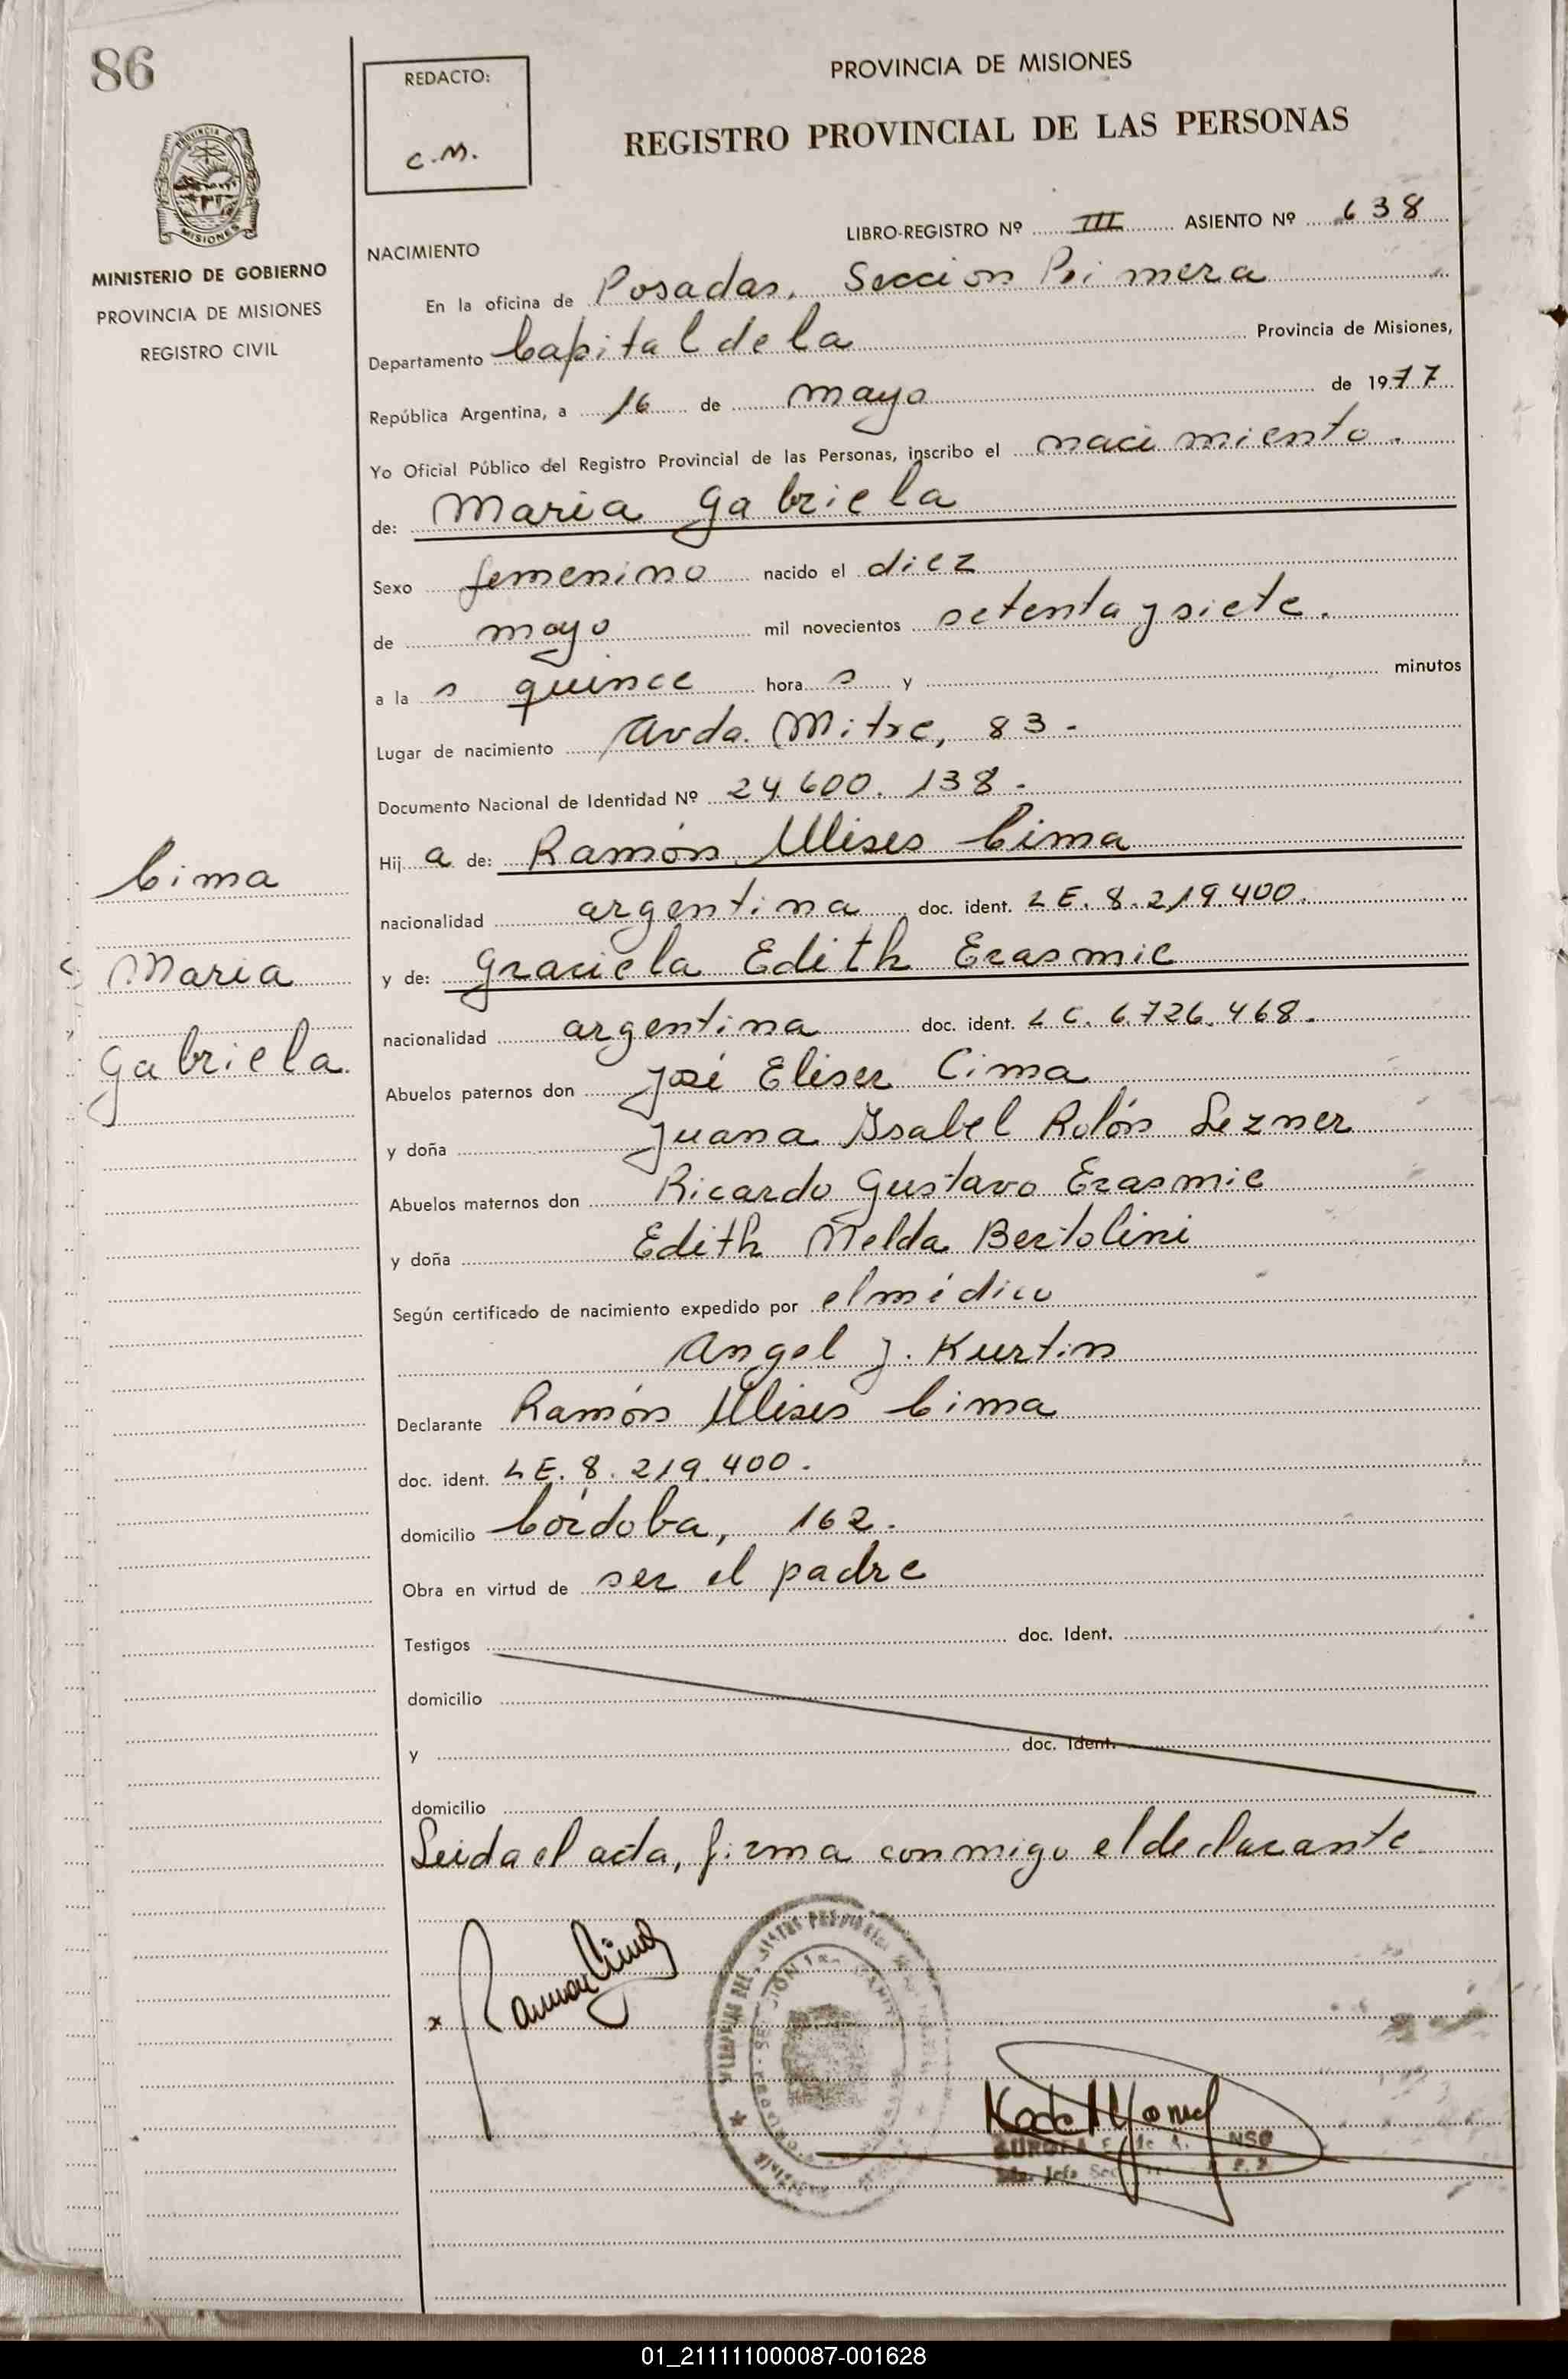 86
REDACTO:
C.M.
PROVINCIA DE MISIONES
REGISTRO PROVINCIAL DE LAS PERSONAS
PROVINCIA DE
MISIONES
MINISTERIO DE GOBIERNO
PROVINCIA DE MISIONES
REGISTRO CIVIL
LIBRO-REGISTRO Nº III ASIENTO Nº 638
NACIMIENTO
En la oficina de Posadas, Seccion Primera
Departamento Capital de la Provincia de Misiones,
República Argentina, a 16 de mayo de 1977
Yo Oficial Público del Registro Provincial de las Personas, inscribo el nacimiento.
de: Maria Gabriela
Sexo femenino nacido el diez
de mayo mil novecientos setenta y siete.
a la s quince hora s y minutos
Lugar de nacimiento Avda. Mitre, 83-
Documento Nacional de Identidad Nº 24.600.138.
Hij a de: Ramón Ulises Cima
nacionalidad argentina doc. ident. LE. 8.219.400.
y de: Graciela Edith Erasmie
nacionalidad argentina doc. ident. LC. 6.726.468.
Abuelos paternos don José Eliser Cima
y doña Juana Isabel Rolón Lezner
Abuelos maternos don Ricardo Gustavo Erasmie
y doña Edith Nelda Bertolini
Según certificado de nacimiento expedido por el médico
Angel J. Kurtin
Declarante Ramón Ulises Cima
doc. ident. LE. 8.219.400.
domicilio Córdoba, 162.
Obra en virtud de ser el padre
Testigos doc. Ident.
domicilio
y doc. Ident.
domicilio
Leida el acta, firma conmigo el declarante
Cima
Maria
Gabriela.
x Ramon Cima
01_211111000087-001628